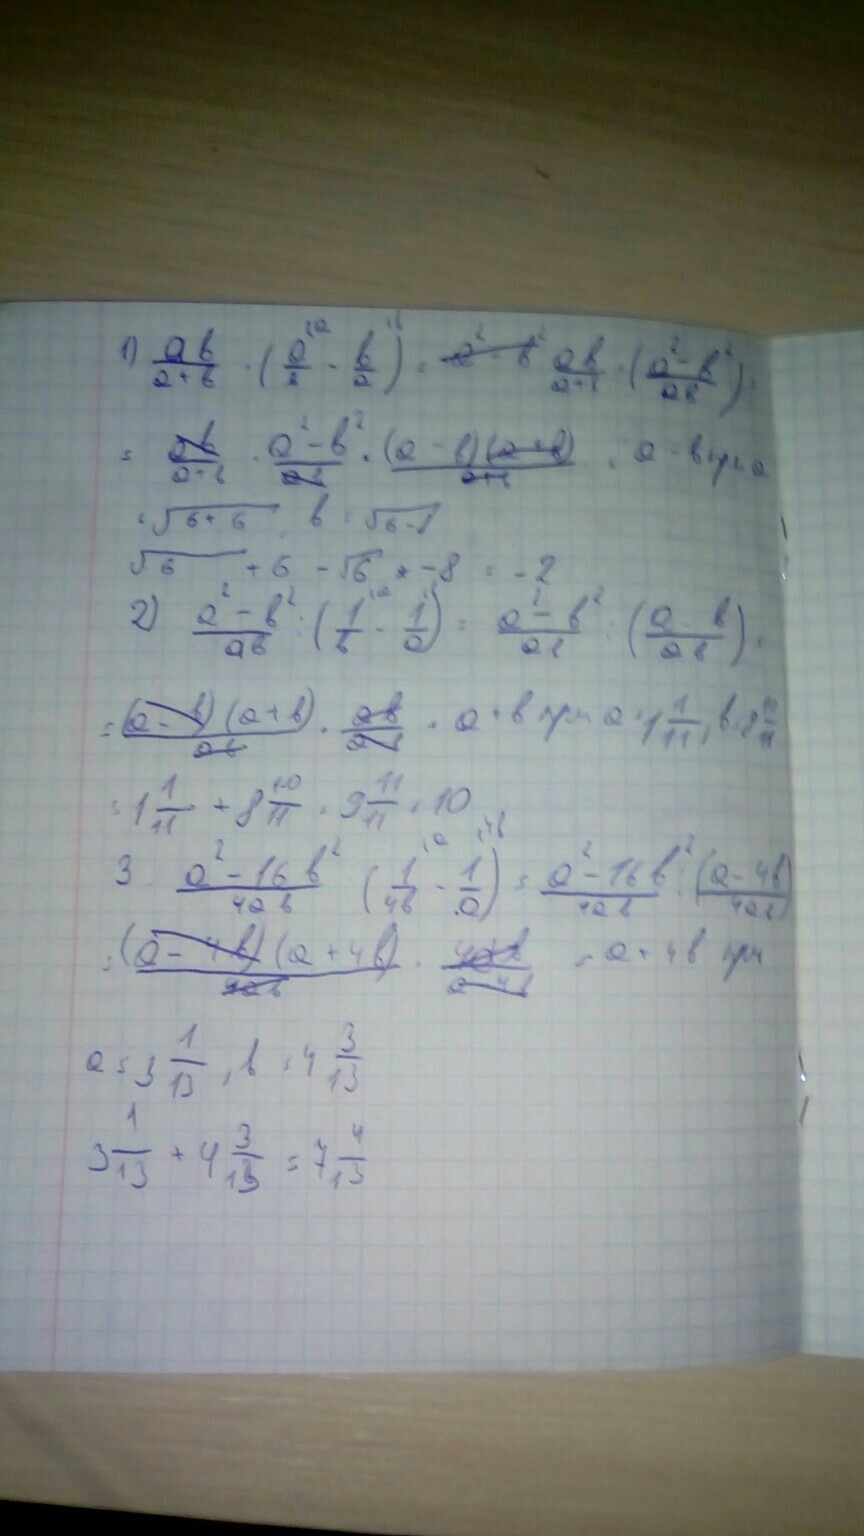 1) ab/a+b · (a/b - b/a) = ab/a+b · (a² - b²/ab) =
= ab/a+b · a² - b²/ab = (a - b)(a+b)/a+b = a - b при a
= √6+6, b = √6-8
√6 + 6 - √6 + -8 = -2
2) a² - b²/ab : (1/b - 1/a) = a² - b²/ab : (a - b/ab) =
= (a - b)(a+b)/ab · ab/a-b = a + b при a = 1 1/11, b = 8 10/11
= 1 1/11 + 8 10/11 = 9 11/11 = 10
3 a² - 16b²/4ab (1/4b - 1/a) = a² - 16b²/4ab : (a - 4b/4ab)
= (a - 4b)(a + 4b)/4ab · 4ab/a-4b = a + 4b при
a = 3 1/13, b = 4 3/13
3 1/13 + 4 3/13 = 7 4/13